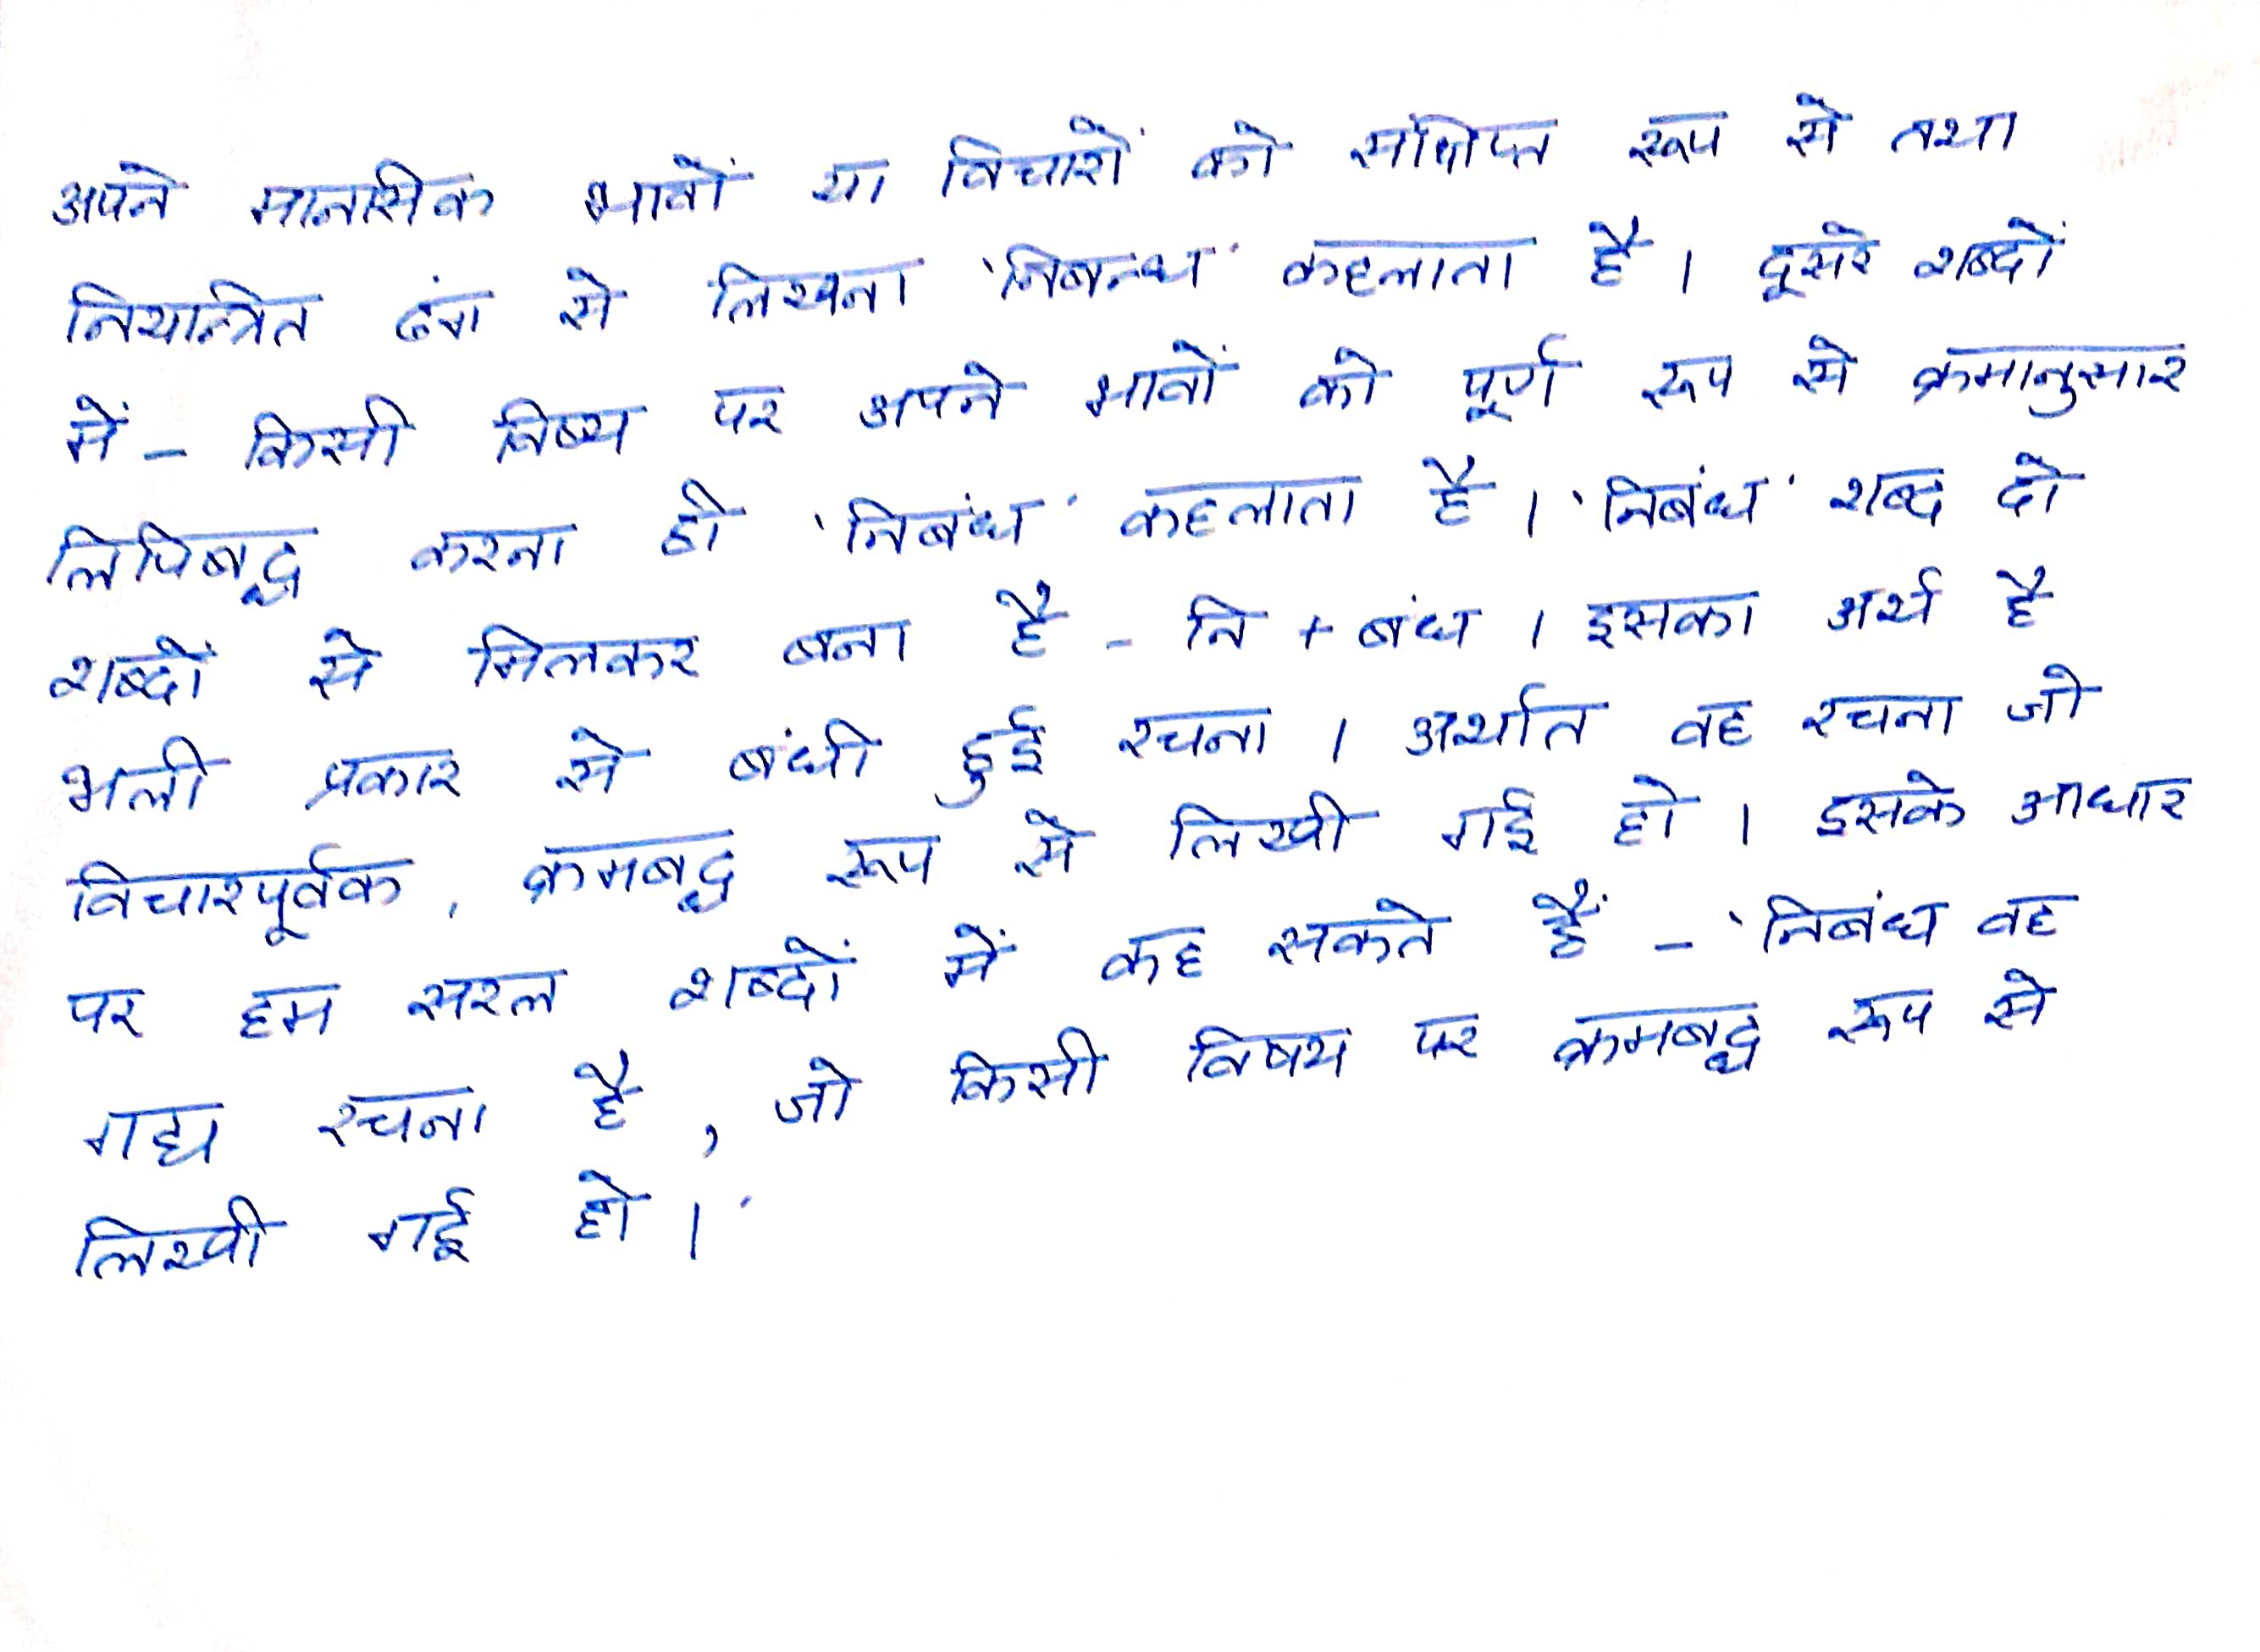 अपने मानसिक भावों या विचारों को संक्षिप्त रूप से तथा
नियन्त्रित ढंग से लिखना 'निबन्ध' कहलाता है। दूसरे शब्दों
में - किसी विषय पर अपने भावों को पूर्ण रूप से क्रमानुसार
लिपिबद्ध करना ही 'निबंध' कहलाता है। 'निबंध' शब्द दो
शब्दों से मिलकर बना है - नि + बंध। इसका अर्थ है
भली प्रकार से बंधी हुई रचना। अर्थात वह रचना जो
विचारपूर्वक, क्रमबद्ध रूप से लिखी गई हो। इसके आधार
पर हम सरल शब्दों में कह सकते हैं - 'निबंध वह
गद्य रचना है, जो किसी विषय पर क्रमबद्ध रूप से
लिखी गई हो।'